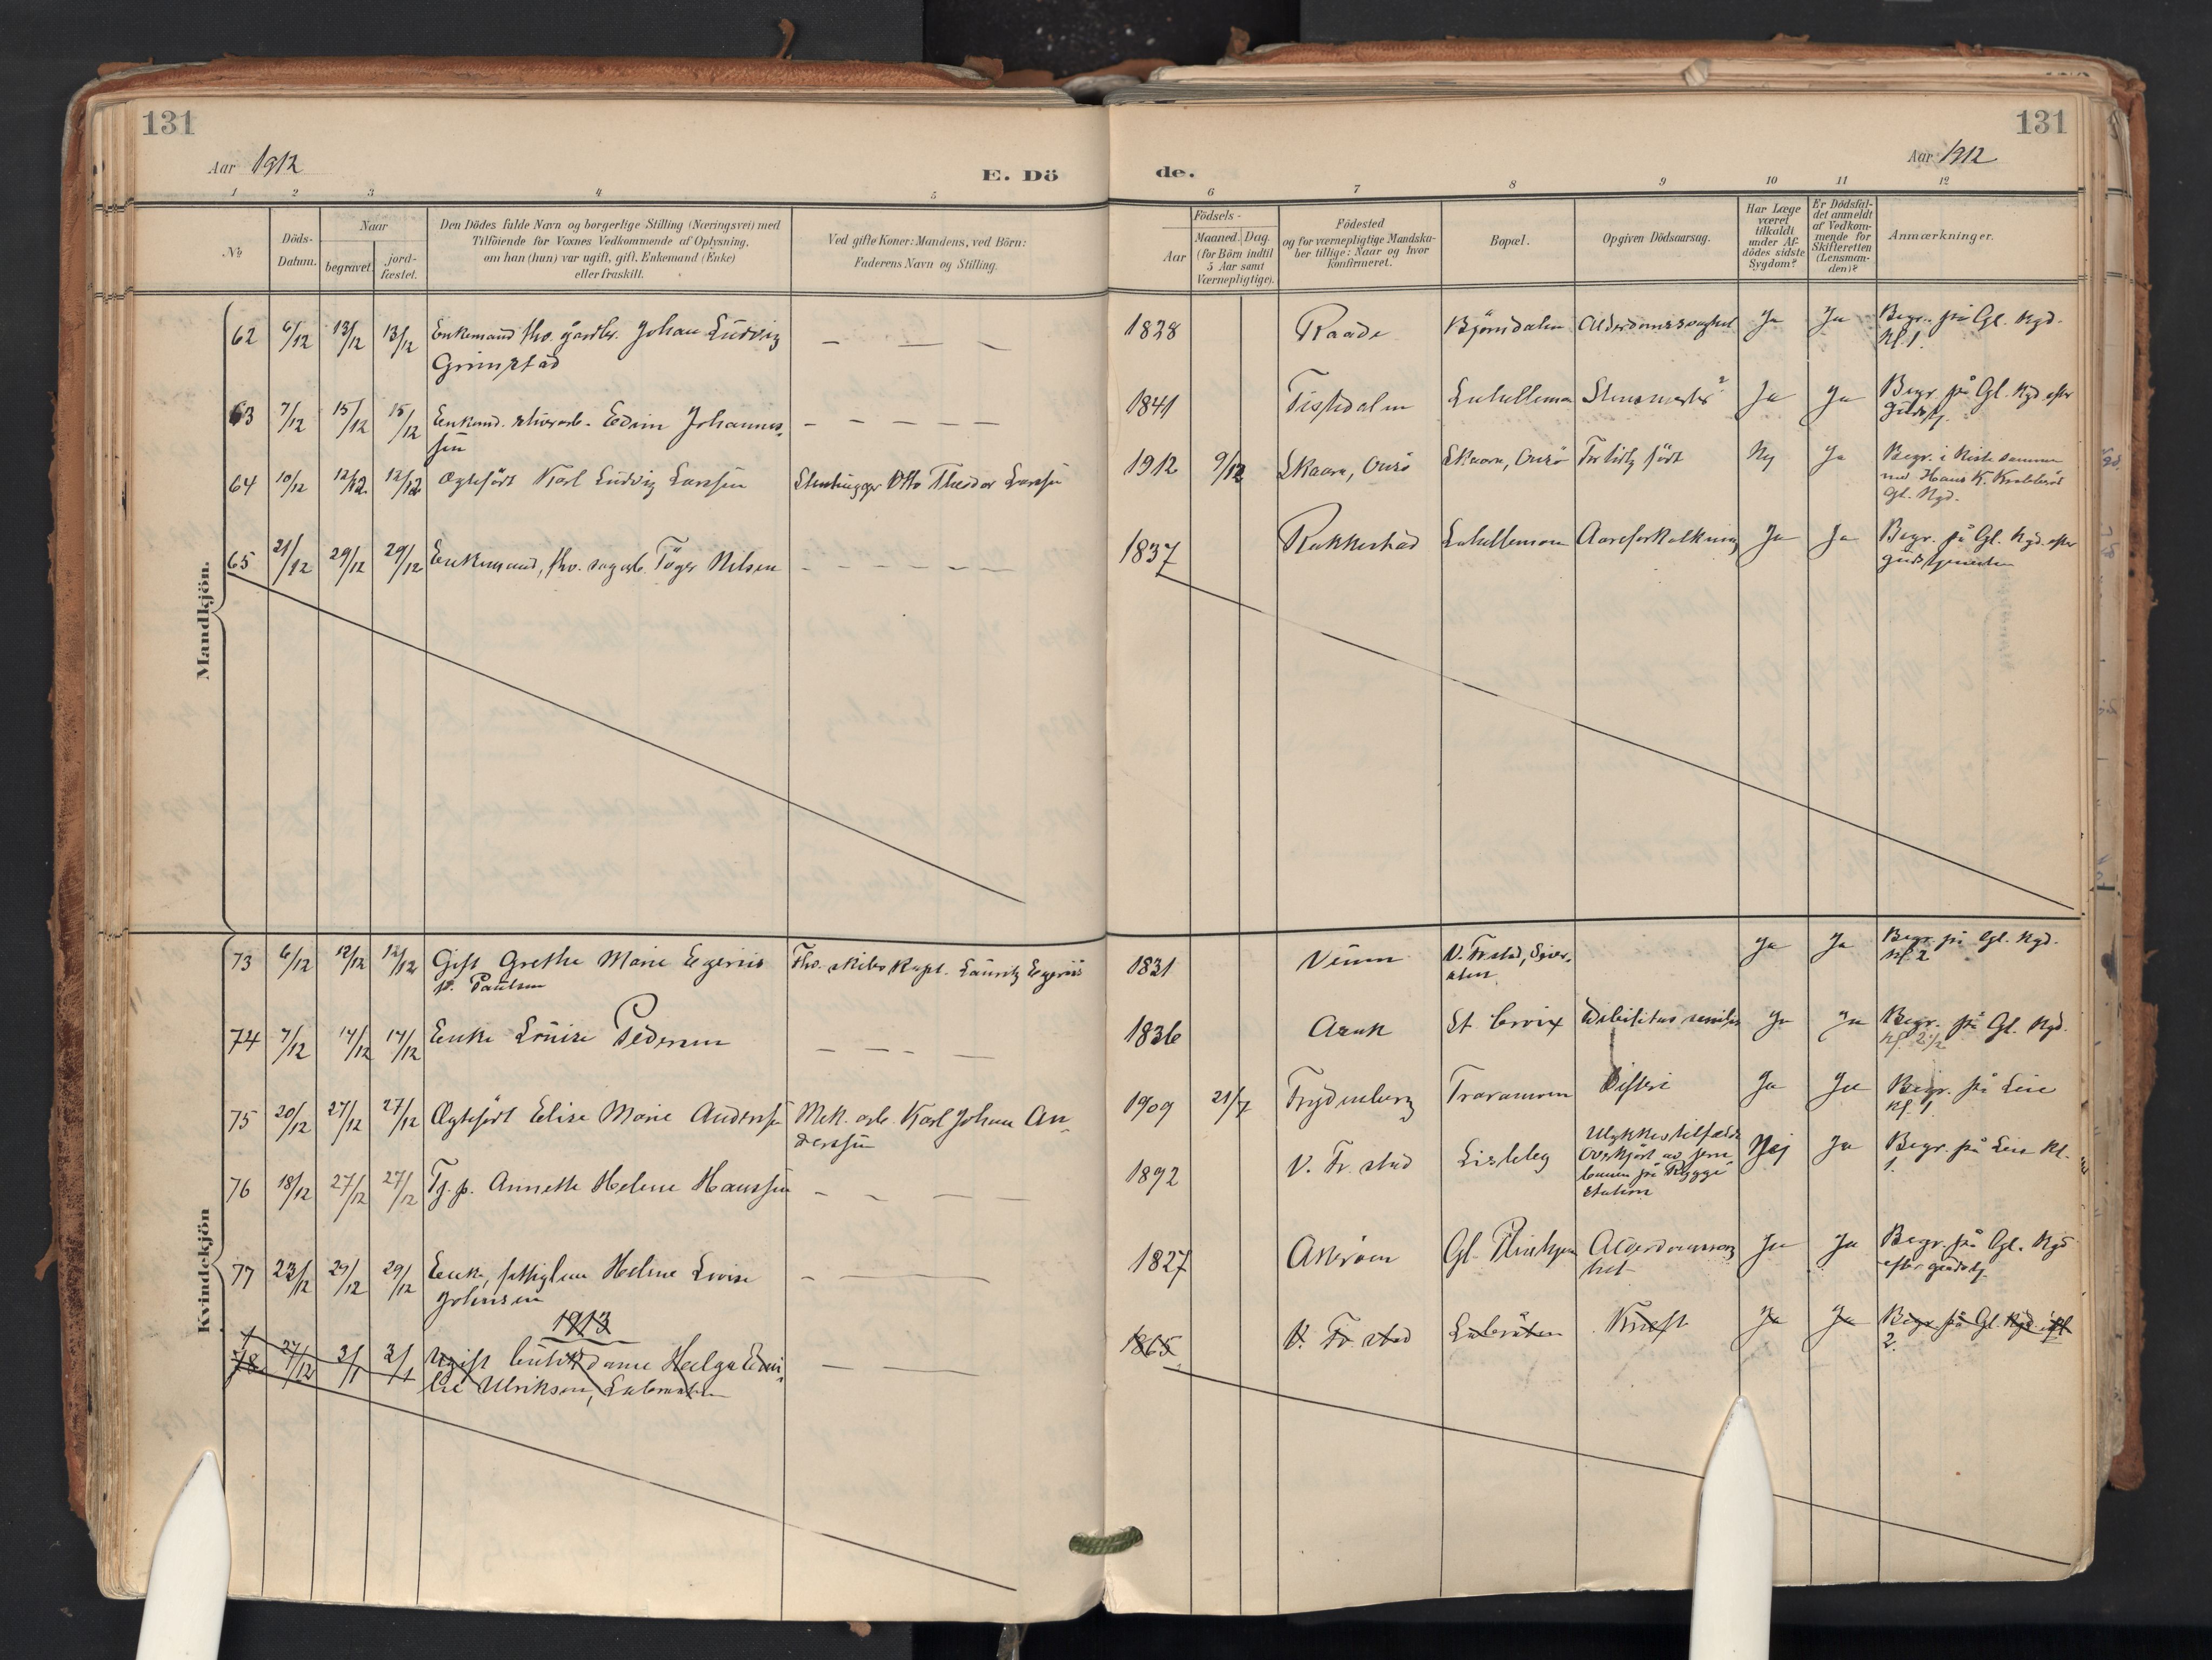 131
131
Aar 1912
E. Dö
de.
Aar 1912
1 2 3 4 5
6 7 8 9 10 11 12
№
Döds-
Datum.
Naar
begravet.
jord-
fæstet.
Den Dödes fulde Navn og borgerlige Stilling (Næringsvei) med
Tilföiende for Voxnes Vedkommende af Oplysning,
om han (hun) var ugift, gift, Enkemand (Enke)
eller fraskilt.
Ved gifte Koner: Mandens, ved Börn:
Faderens Navn og Stilling.
Födsels-
Aar
Maaned. Dag.
(for Börn indtil
5 Aar samt
Værnepligtige).
Födested
og for værnepligtige Mandska-
ber tillige: Naar og hvor
konfirmeret.
Bopæl.
Opgiven Dödsaarsag.
Har Læge
været
tilkaldt
under Af-
dödes sidste
Sygdom?
Er Dödsfal-
det anmeldt
af Vedkom-
mende for
Skifteretten
(Lensman-
den)?
Anmærkninger.
Mandkjön.
62 6/12 13/12 13/12 Enkemand fhv. gaardbr. Johan Ludvig
Grimstad
1838 Raade Björndalen Alderdomssvaghed Ja Ja Begr. på Gl. Kgd.
Kl. 1.
63 7/12 15/12 15/12 Enkemd. Edvin Johannes-
sen
1841 Tistedalen Lahellemoen Ja Ja Begr. på Gl. Kgd. efter
gudstj.
64 10/12 12/12 12/12 Ægtefödt Karl Ludvig Larssen Stenhugger Otto Theodor Larssen
1912 9/12 Skaara, Onsö Skaara, Onsö For tidlig födt Nej Ja Begr. i Kiste sammen
med Hans K.
Gl. Kgd.
65 21/12 29/12 29/12 Enkemand, fhv. sagarb. Töger Nilsen
1837 Rakkestad Lahellemoen Aareforkalkning Ja Ja Begr. på Gl. Kgd. efter
gudstjenesten
Kvindekjön
73 6/12 12/12 12/12 Gift Grethe Marie Egeriis
f. Paulsen
Fhv. skibskapt. Lauritz Egeriis
1831 V. Fr.stad, Ja Ja Begr. på Gl. Kgd.
Kl. 2
74 7/12 14/12 14/12 Enke Louise Pedersen
1836 Asak St. Croix Debilitas senilis Ja Ja Begr. på Gl. Kgd.
Kl. 2 1/2
75 20/12 27/12 27/12 Ægtefödt Elise Marie Anderssen Mek. arb. Karl Johan An-
derssen
1909 21/7 Frydenberg Traramoen Difteri Ja Ja Begr. på Leie
Kl. 1.
76 18/12 27/12 27/12 Tj.p. Annette Helene Hanssen
1892 V. Fr.stad Lisleby Ulykkestilfælde
Overkjört av jern
banen på Rygge
station
Nej Ja Begr. på Leie Kl.
1.
77 23/12 29/12 29/12 Enke, fattiglem Helene Lovise
Johnsen
1827 Askröen Gl. Alderdomssvag
het
Ja Ja Begr. på Gl. Kgd
efter gudstj.
1913
1
78 27/12 3/1 3/1 Ugift butikdame Helga Emi-
lie Ulriksen,
1865 V. Fr.stad Labråten Kræft Ja Ja Begr. på Gl. Kgd. kl
2.